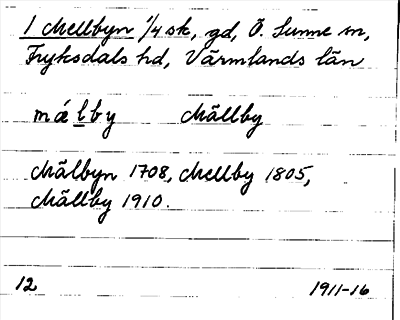 1 Mellbyn 1/4 sk, gd, Ö. Sunne sn,
Fryksdals hd, Värmlands län
mǽlby Mällby
Mälbyn 1708, Mellby 1805,
Mällby 1910.
12 1911-16